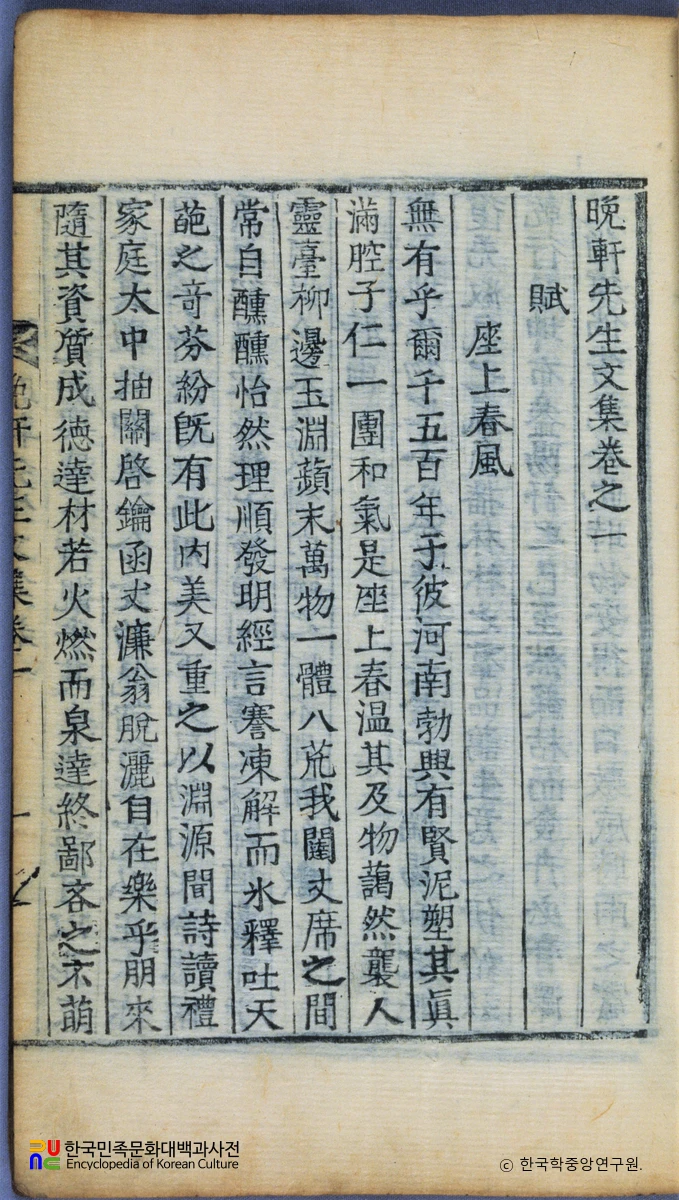 晩軒先生文集卷之一
賦
座上春風
無有乎爾千五百年于彼河南勃興有賢泥塑其眞
滿腔子仁一團和氣是座上春溫其及物藹然襲人
靈臺柳邊玉淵蘋末萬物一體八荒我闥丈席之間
常自醺醺怡然理順發明經言謇凍解而氷釋吐天
葩之奇芬紛旣有此內美又重之以淵源聞詩讀禮
家庭太中抽關啓鑰函丈濂翁脫灑自在樂乎朋來
隨其資質成德達材若火燃而泉達終鄙吝之不萌
晩軒先生文集卷一
一
한국민족문화대백과사전
Encyclopedia of Korean Culture
© 한국학중앙연구원.